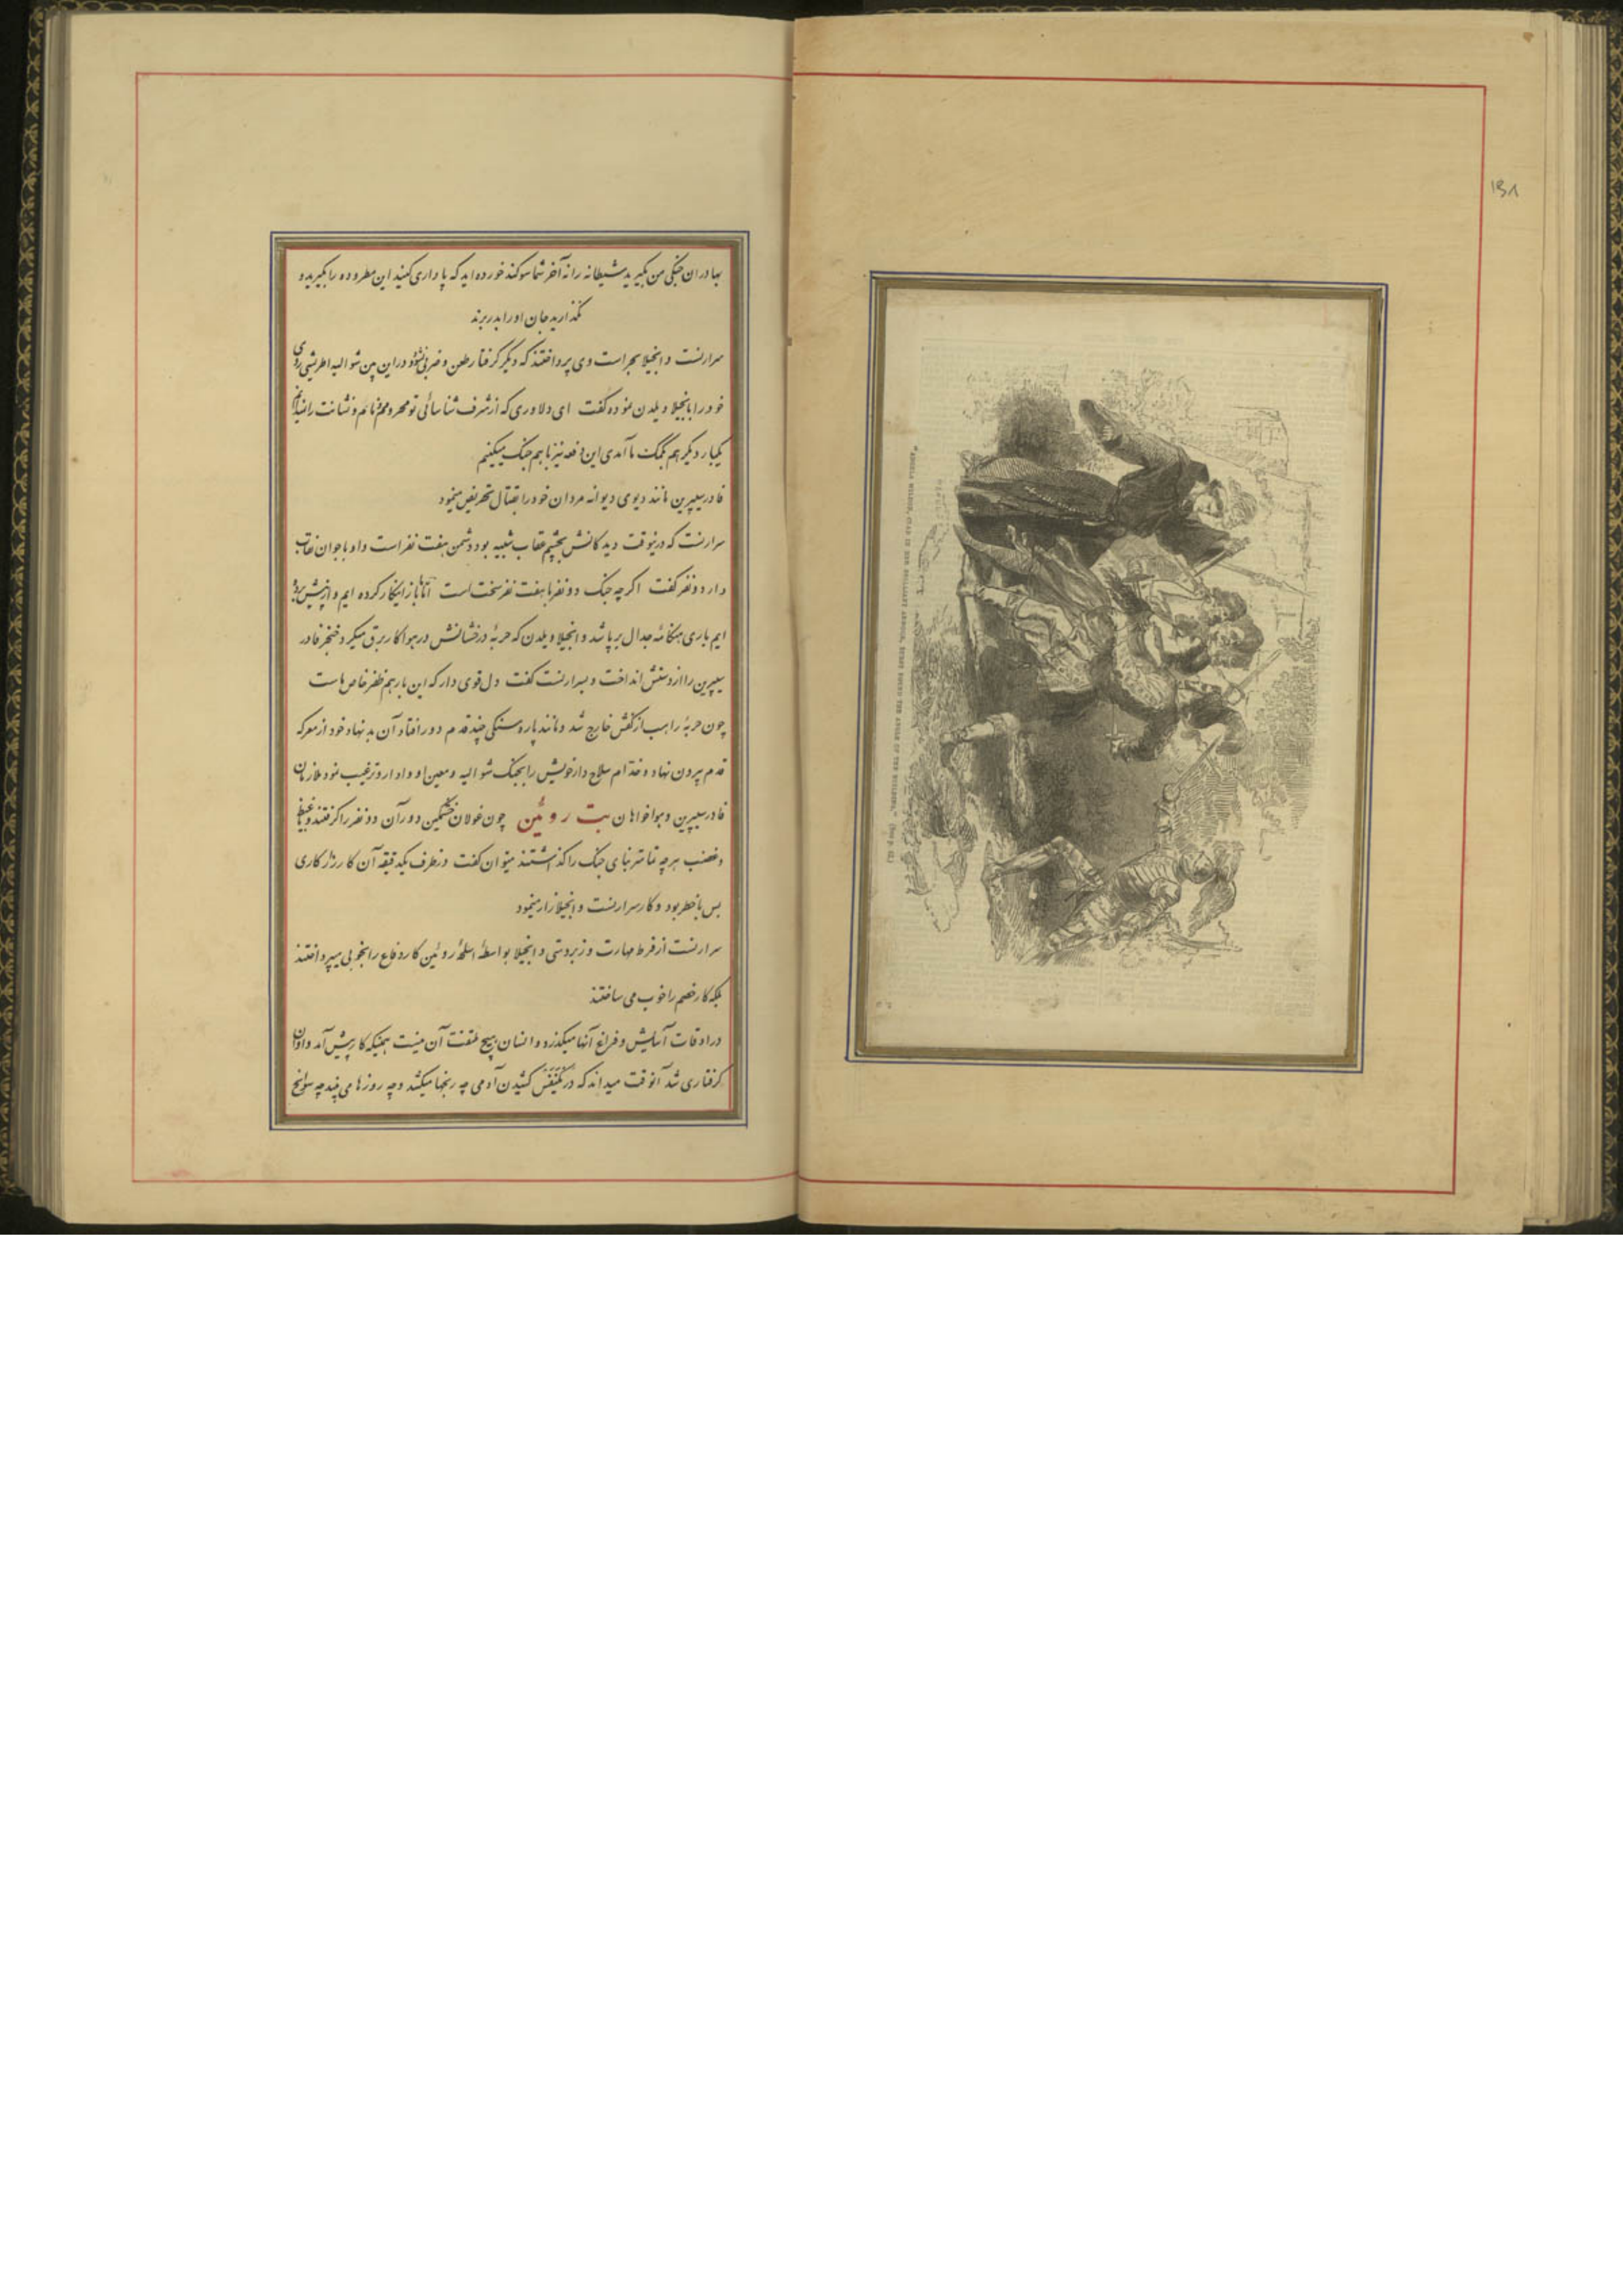 ۱۵۸
بهادران جنگی من بگیرید شیطانه را نه آخر شما سوگند خورده اید که پا داری کنید این مطروده را بگیرید و
نگذارید جان او را بدر برند
سرارنست و انجیلا بحراست وی پرداختند که دیگر گرفتار طعن و ضربی نشود در این بین شوالیه اطریشی روی
خود را بانجیلا ویلدن نموده گفت ای دلاوری که از شرف شناسائی تو محروم و نام و نشانت را نمیدانم
یکبار دیگر هم بکمک ما آمدی این دفعه نیز با هم جنگ میکنیم
فادر سیپرین مانند دیوی دیوانه مردان خود را بقتال تحریض مینمود
سرارنست که درینوقت دیدگانش بچشم عقاب شبیه بود دشمن هفت نفر است و او با جوان نقاب
دار دو نفر گفت اگر چه جنگ دو نفر با هفت نفر سخت است اما باز اینکار کرده ایم و از پیش برده
ایم باری هنگامه جدال برپا شد و انجیلا ویلدن که حربهٔ درخشانش در هوا کار برق میکرد خنجر فادر
سیپرین را از دستش انداخت و بسرارنست گفت دل قوی دار که این بار هم ظفر خاص ماست
چون حربهٔ راهب از کفش خارج شد و مانند پاره سنگی چند قدم دور افتاد آن بد نهاد خود از معرکه
قدم بیرون نهاد و خدام سلاح دار خویش را بجنگ شوالیه و معین او وادار و ترغیب نمود ملازمان
فادر سیپرین و هواخواهان بت روئین چون غولان خشمگین دور آن دو نفر را گرفتند و با غیظ
و غضب هر چه تمامتر بنای جنگ را گذاشتند میتوان گفت در ظرف یکدقیقه آن کارزار کاری
بس با خطر بود و کار سرارنست و انجیلا زار مینمود
سرارنست از فرط مهارت و زبردستی و انجیلا بواسطهٔ اسلحهٔ روئین کار دفاع را بخوبی میپرداختند
بلکه کار خصم را خوب می ساختند
در اوقات آسایش و فراغ آنها میگذرد و انسان هیچ ملتفت آن نیست همینکه کار پیش آمد و اوان
گرفتاری شد آنوقت میداند که در یکنفس کشیدن آدمی چه رنجها میکشد و چه روزها می بیند چه سوانح